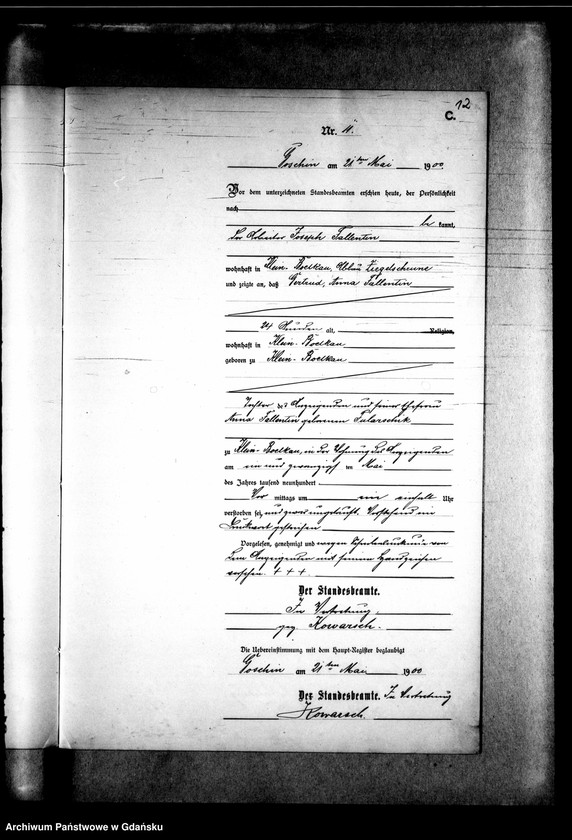 12
C.
Nr. 11.
Göschin am 21ten Mai 1900.
Vor dem unterzeichneten Standesbeamten erschien heute, der Persönlichkeit
nach
be kannt,
der Arbeiter Joseph Tallentin
wohnhaft in Klein-Boelkau, Ziegelscheune
und zeigte an, daß Gertrud, Anna Tallentin
24 Stunden alt, Religion,
wohnhaft in Klein-Boelkau
geboren zu Klein-Boelkau
Tochter des Anzeigenden und seiner Ehefrau
Anna Tallentin geborenen
zu Klein-Boelkau, in der Wohnung des Anzeigenden
am ein und zwanzigsten Mai
des Jahres tausend neunhundert
Vor mittags um ein einhalb Uhr
verstorben sei, und zwar ungetauft. Vorstehend ein
Druckwort gestrichen
Vorgelesen, genehmigt und wegen Schreibensunkunde von
dem Anzeigenden mit seinem Handzeichen
versehen. + + +
Der Standesbeamte.
In Vertretung.
gez. Kowarsch.
Die Uebereinstimmung mit dem Haupt-Register beglaubigt
Göschin am 21ten Mai 1900
Der Standesbeamte. In Vertretung
Kowarsch.
Archiwum Państwowe w Gdańsku